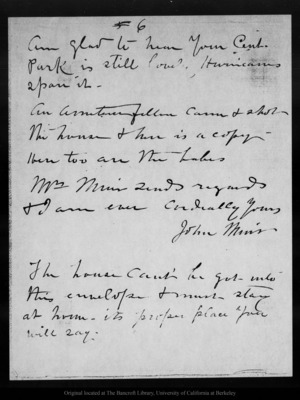 #6
Am glad to hear your Cent.
Park is still loud. Hurricanes
spare it.
An amateur fellow came & shot
the house & here is a copy -
Here too are the babes
Mrs Muir sends regards
& I am ever Cordially Yours
John Muir
The house can't be got into
this envelope & must stay
at home - its proper place you
will say.
Original located at The Bancroft Library, University of California at Berkeley